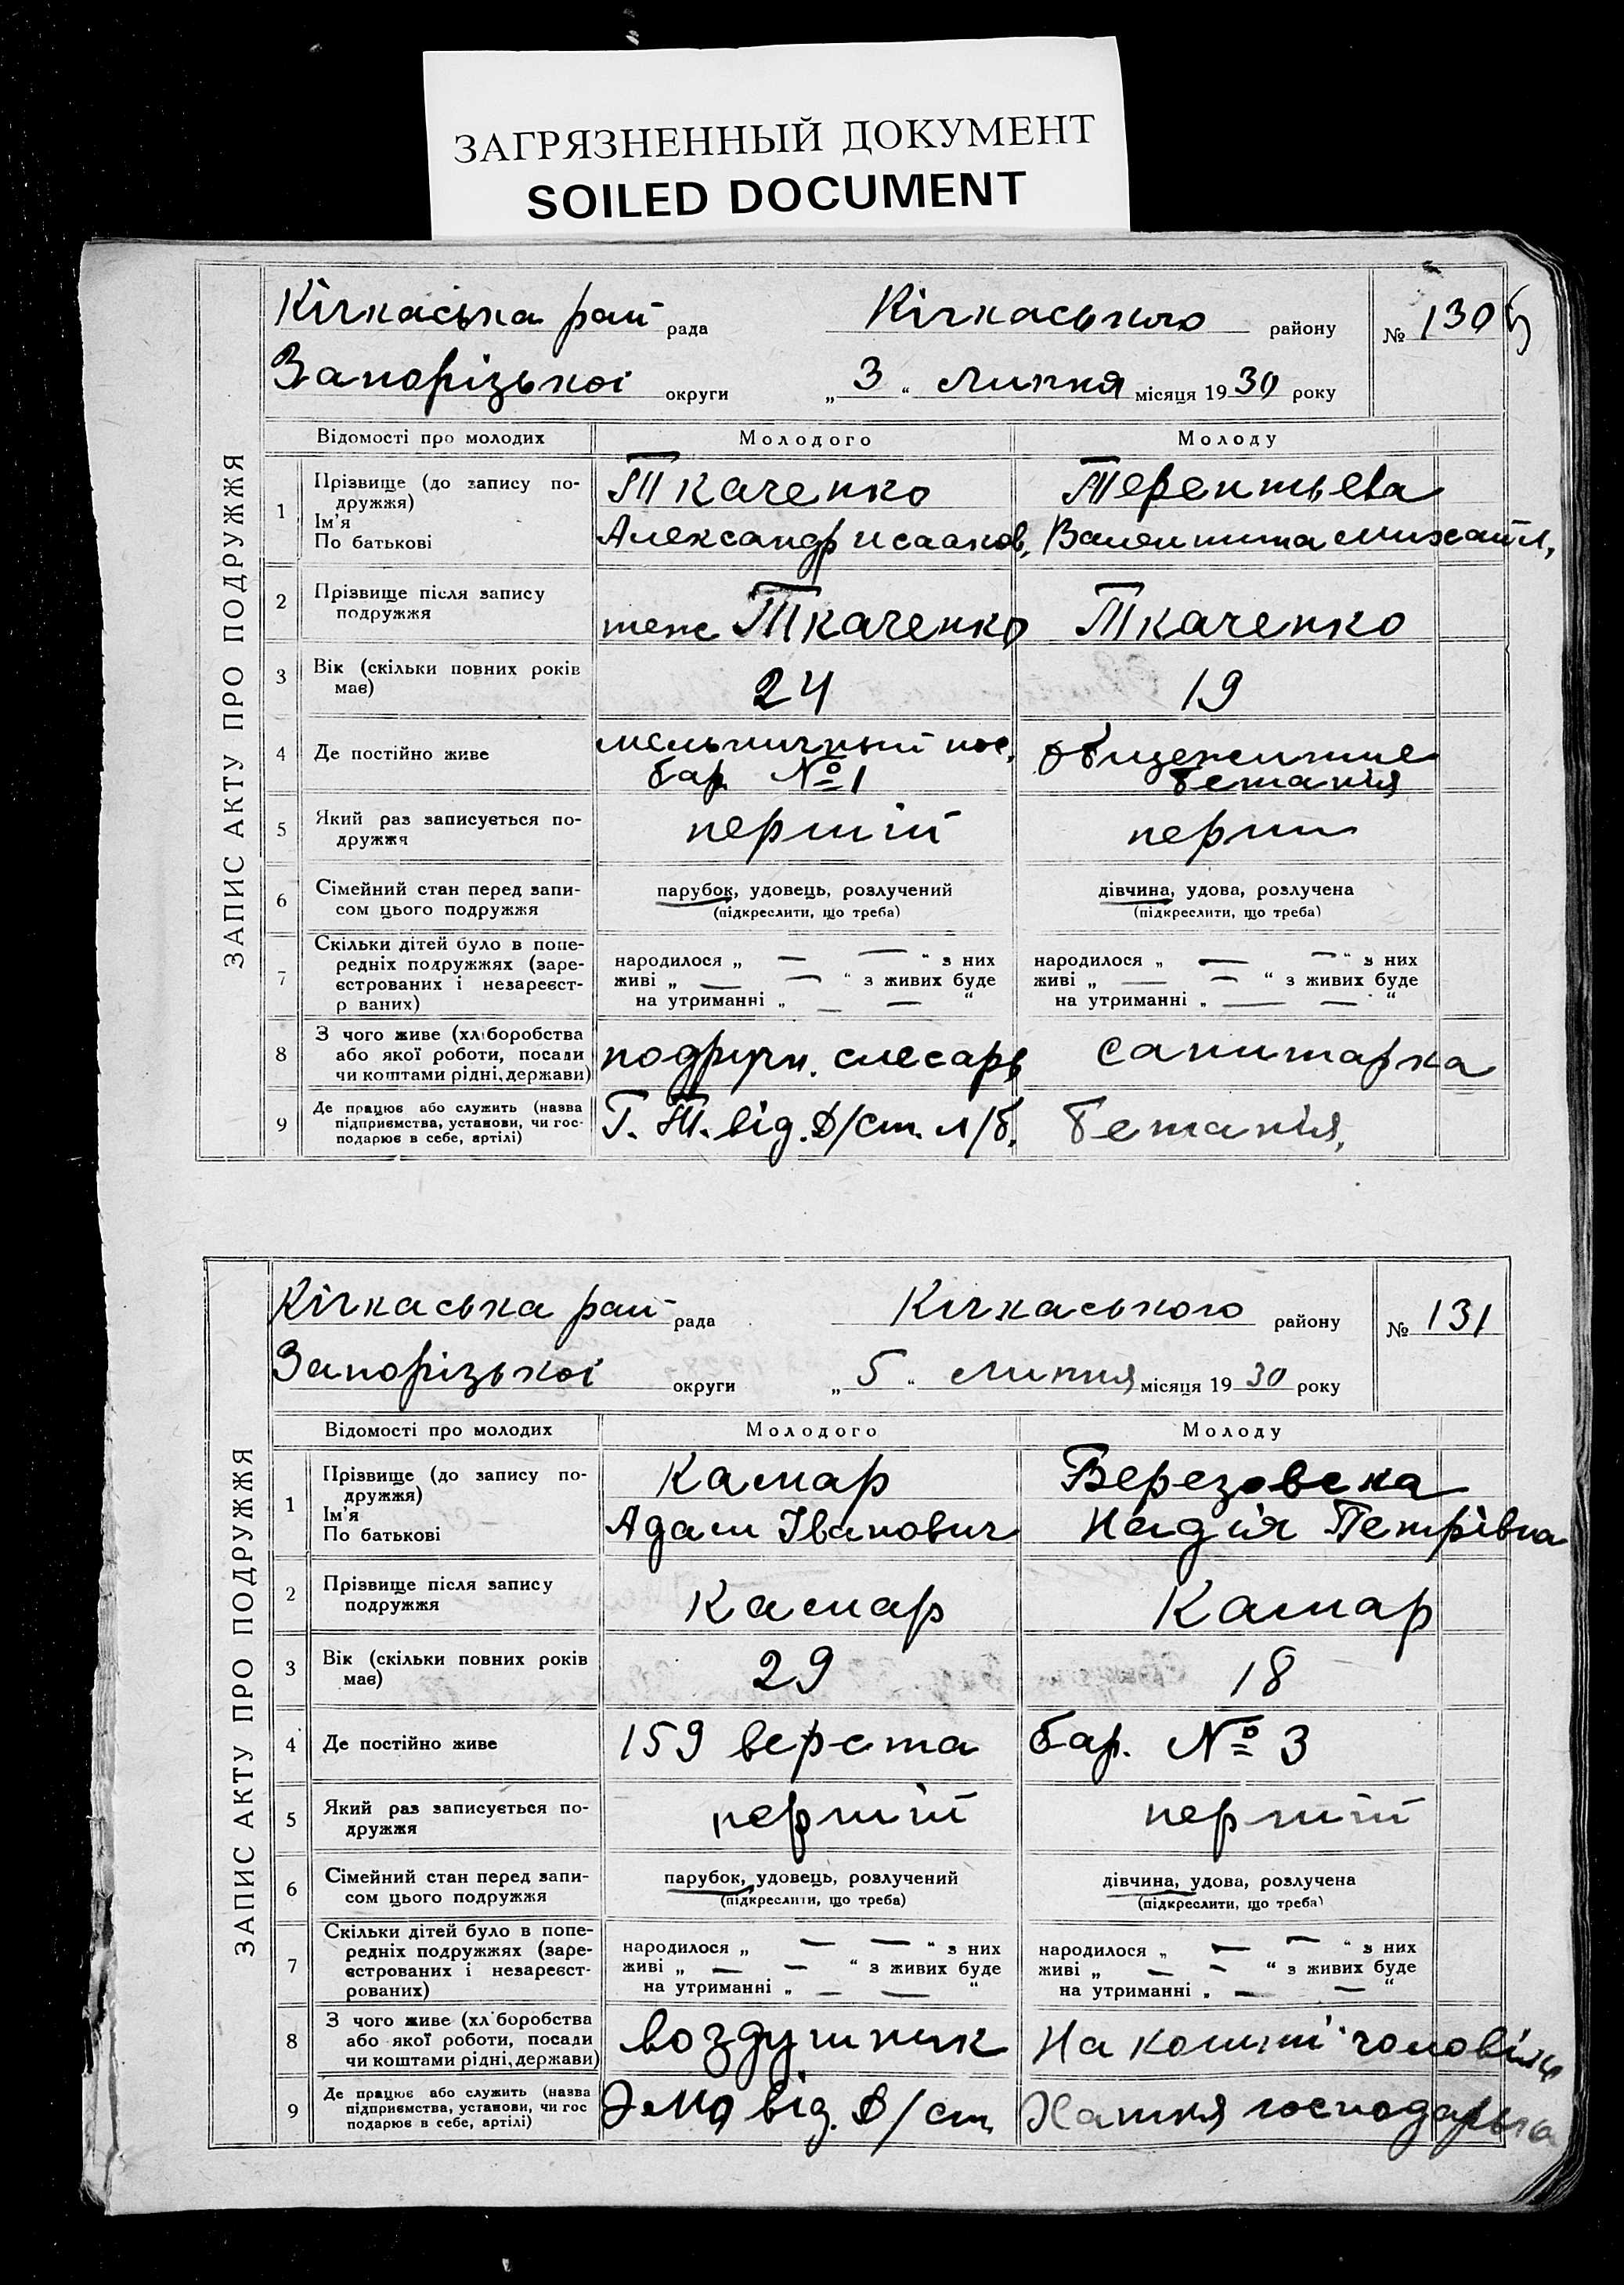 ЗАГРЯЗНЕННЫЙ ДОКУМЕНТ
SOILED DOCUMENT
ЗАПИС АКТУ ПРО ПОДРУЖЖЯ
Кічкаська рай рада Кічкаського району № 130
Запорізької округи „ 3 “ Липня місяця 19 30 року
Відомості про молодих Молодого Молоду
1 Прізвище (до запису по-
дружжя)
Ім'я
По батькові
Ткаченко Терентьева
Александр Исааков. Валентина Михайл.
2 Прізвище після запису
подружжя
теж Ткаченко Ткаченко
3 Вік (скільки повних років
має)
24 19
4 Де постійно живе
мельничный пос. общежитие
бар. № 1 Бетанія
5 Який раз записується по-
дружжя
перший перший
6 Сімейний стан перед запи-
сом цього подружжя
парубок, удовець, розлучений дівчина, удова, розлучена
(підкреслити, що треба) (підкреслити, що треба)
7 Скільки дітей було в попе-
редніх подружжях (заре-
єстрованих і незареєст-
р ваних)
народилося „ — — “ з них народилося „ — — “ з них
живі „ — — “ з живих буде живі „ — — “ з живих буде
на утриманні „ — — “ на утриманні „ — — “
8 З чого живе (хл боробства
або якої роботи, посади
чи коштами рідні, держави)
подручн. слесарь санитарка
9 Де працює або служить (назва
підприємства, установи, чи гос-
подарює в себе, артілі)
Г. Т. від. Д/ст. л/б. Бетанія.
ЗАПИС АКТУ ПРО ПОДРУЖЖЯ
Кічкаська рай рада Кічкаського району № 131
Запорізької округи „ 5 “ Липня місяця 19 30 року
Відомості про молодих Молодого Молоду
1 Прізвище (до запису по-
дружжя)
Ім'я
По батькові
Камар Березовска
Адам Іванович Надія Петрівна
2 Прізвище після запису
подружжя
Камар Камар
3 Вік (скільки повних років
має)
29 18
4 Де постійно живе
159 верста бар. № 3
5 Який раз записується по-
дружжя
перший перший
6 Сімейний стан перед запи-
сом цього подружжя
парубок, удовець, розлучений дівчина, удова, розлучена
(підкреслити, що треба) (підкреслити, що треба)
7 Скільки дітей було в попе-
редніх подружжях (заре-
єстрованих і незареєст-
рованих)
народилося „ — — “ з них народилося „ — — “ з них
живі „ — — “ з живих буде живі „ — — “ з живих буде
на утриманні „ — — “ на утриманні „ — — “
8 З чого живе (хл боробства
або якої роботи, посади
чи коштами рідні, держави)
воздушник На кошти чоловіка
9 Де працює або служить (назва
підприємства, установи, чи гос
подарює в себе, артілі)
від. Д/ст. Хатня господарька